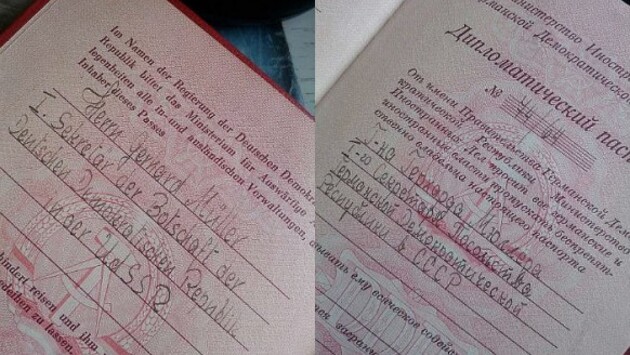 Im Namen der Regierung der Deutschen Demokra
Republik bittet das Ministerium für Auswärtige
legenheiten alle in- und ausländischen Verwaltungen,
Inhaber dieses Passes
Herrn Gerhard Müller
I. Sekretär der Botschaft der
Deutschen Demokratischen Republik
in der UdSSR
hindert reisen und ihm
zu lassen.
Министерство Иностран
Германской Демократической
Дипломатический пасп
№
От имени Правительства Германской Демо
кратической Республики Министерство
Иностранных Дел просит все германские и
иностранные власти
ственно владельца настоящего паспорта
Г-на Герхарда Мюллера
I-го Секретаря Посольства
Германской Демократической
Республики в СССР
ему всяческое содей